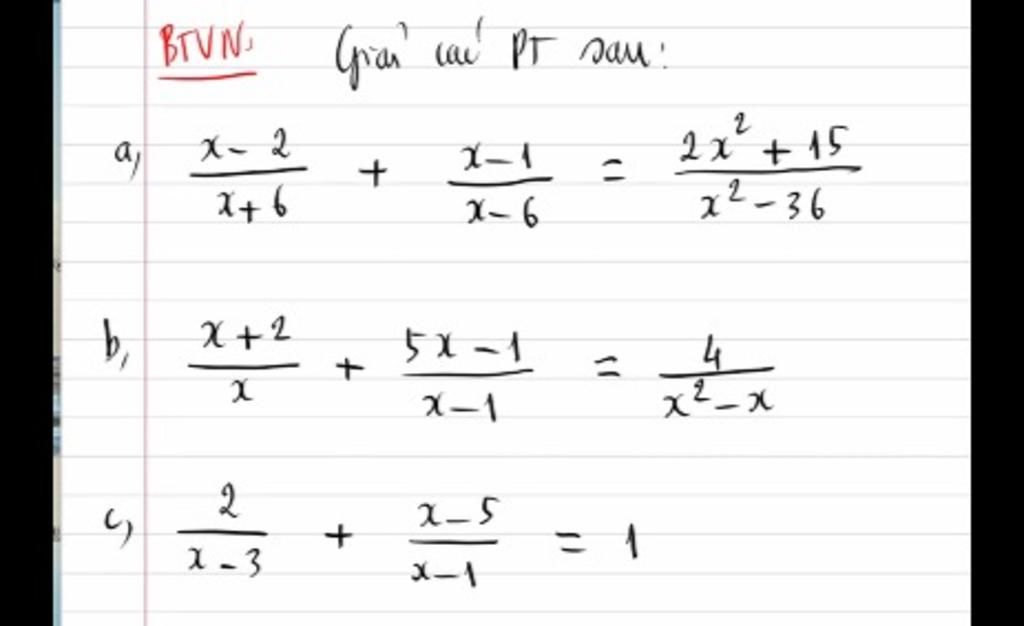 BTVN: Giải các PT sau:
a, \frac{x-2}{x+6} + \frac{x-1}{x-6} = \frac{2x^2+15}{x^2-36}
b, \frac{x+2}{x} + \frac{5x-1}{x-1} = \frac{4}{x^2-x}
c, \frac{2}{x-3} + \frac{x-5}{x-1} = 1